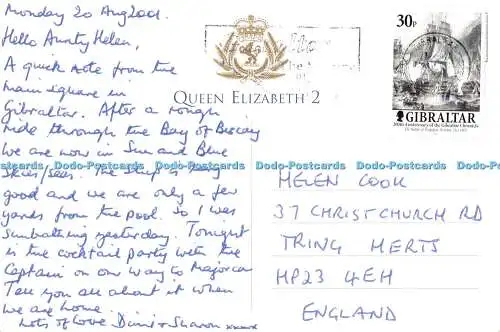 Monday 20 Aug 2001.
Hello Aunty Helen,
A quick note from the
main square in
Gibraltar. After a rough
ride through the Bay of Biscay
we are now in Sun and Blue
skies/seas. The ship is very
good and we are only a few
yards from the pool. So I was
sunbathing yesterday. Tonight
is the cocktail party with the
Captain on our way to Majorca
Tell you all about it when
we are home.
Lots of Love Sharon xxxxx
QUEEN ELIZABETH 2
30p
GIBRALTAR
HELEN COOK
37 CHRISTCHURCH RD
TRING HERTS
HP23 4EH
ENGLAND
Dodo-Postcards Dodo-Postcards Dodo-Postcards Dodo-Postcards Dodo-Postcards